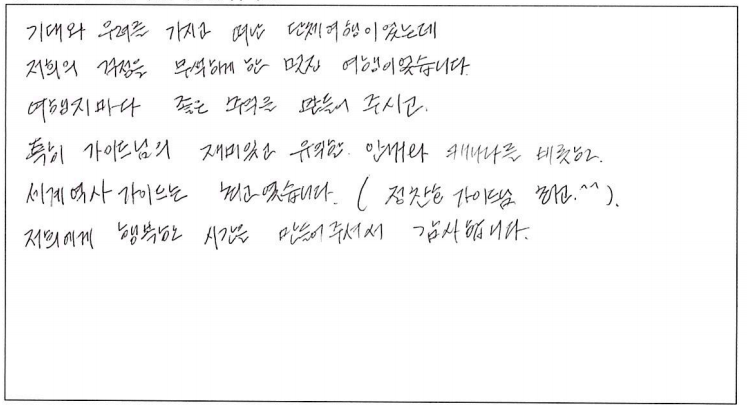 기대와 우려를 가지고 떠난 단체여행이었는데
저희의 걱정을 무색하게 한 멋진 여행이었습니다.
여행지마다 좋은 추억을 만들어 주시고.
특히 가이드님의 재미있고 유익한 안내와 캐나다를 비롯한.
세계역사 가이드는 최고였습니다. ( 정찬호 가이드님 최고.^^ ).
저희에게 행복한 시간을 만들어주셔서 감사합니다.